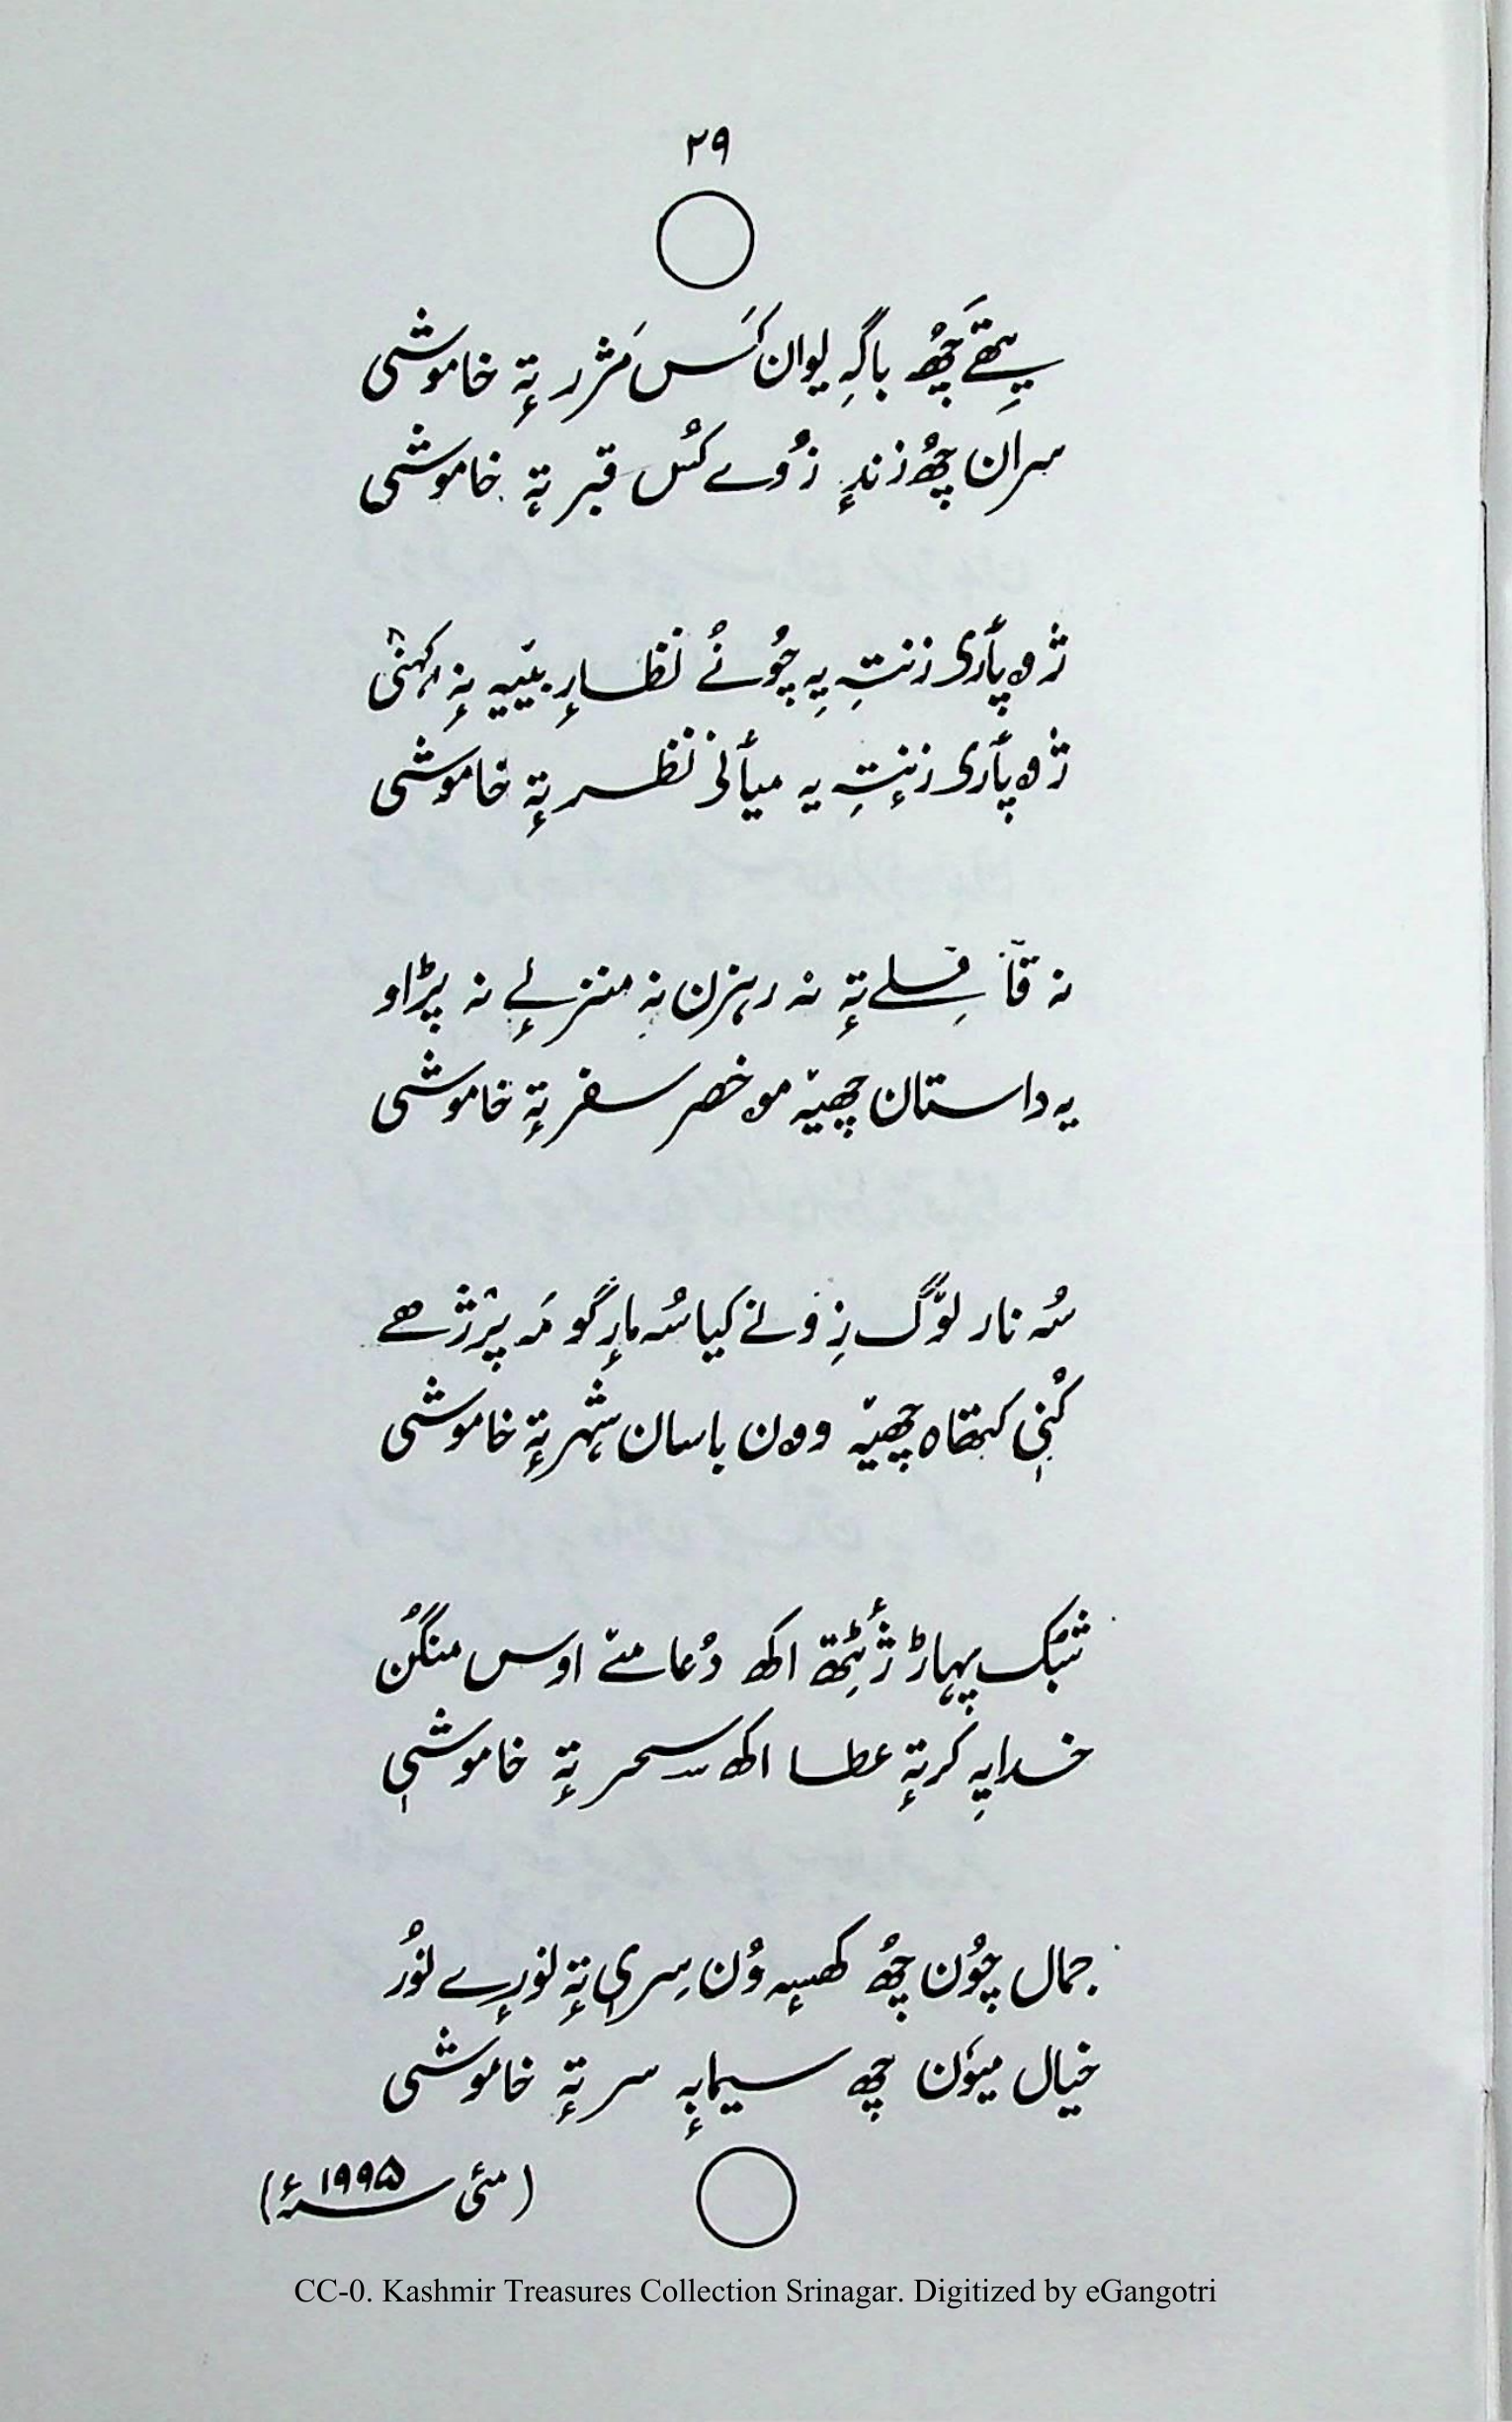 ۲۹
یِتھَے چھُ باگہِ یوان کَس مَژر تہٕ خاموشی
سران چھُ زندٕ زُوے کُس قبر تہٕ خاموشی
ژوپأری زنتہِ یہِ چونُے نظارٕ بییہِ نہٕ کہنی
ژوپأری زنتہِ یہ میأنی نظر تہٕ خاموشی
نہ قافِلے تہٕ نہ رہزن نہٕ منزلے نہ پڑاو
یہ داستان چھیہٕ موخصر سفر تہٕ خاموشی
سُہ نار لوگ زِ ونے کیا سُہ مارٕ گو مَہ پرژھے
کُنٕی کتھاہ چھیہٕ وون باسان شہر تہٕ خاموشی
شبُک پہاڑ ژٔٹِتھ اکھ دُعا مےٚ اوس منگُن
خدایہِ کر تہٕ عطا اکھ سحر تہٕ خاموشی
جمال چون چھُ کھسہٕ وُن سِری تہٕ نورٕے نوُر
خیال میون چھ سیمابہٕ سر تہٕ خاموشی
(مئی ۱۹۹۵ء)
CC-0. Kashmir Treasures Collection Srinagar. Digitized by eGangotri